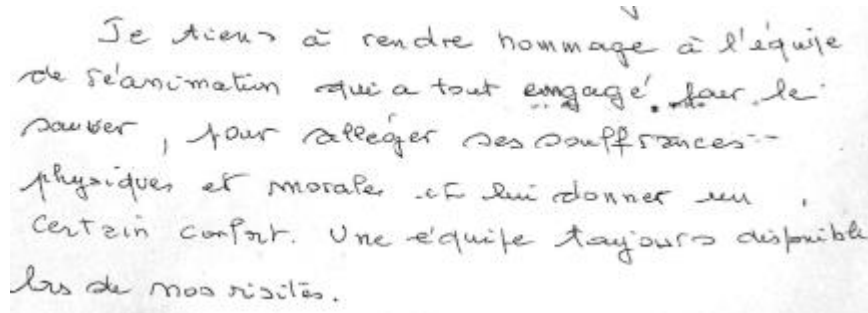 Je tiens à rendre hommage à l'équipe
de réanimation qui a tout engagé pour le
sauver, pour alléger ses souffrances
physiques et morales et lui donner un
certain confort. Une équipe toujours disponible
lors de nos visites.